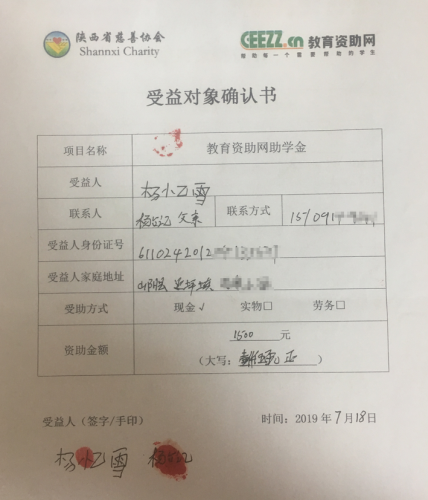 陕西省慈善协会 CEEZZ.cn 教育资助网
Shannxi Charity 帮助每一个需要帮助的学生
受益对象确认书
项目名称 教育资助网助学金
受益人 杨忆雪
联系人 联系方式 157091
受益人身份证号 6110242012
受益人家庭地址
受助方式 现金√ 实物□ 劳务□
资助金额 1500 元
(大写: 正)
受益人(签字/手印) 时间:2019年7月18日
杨忆雪